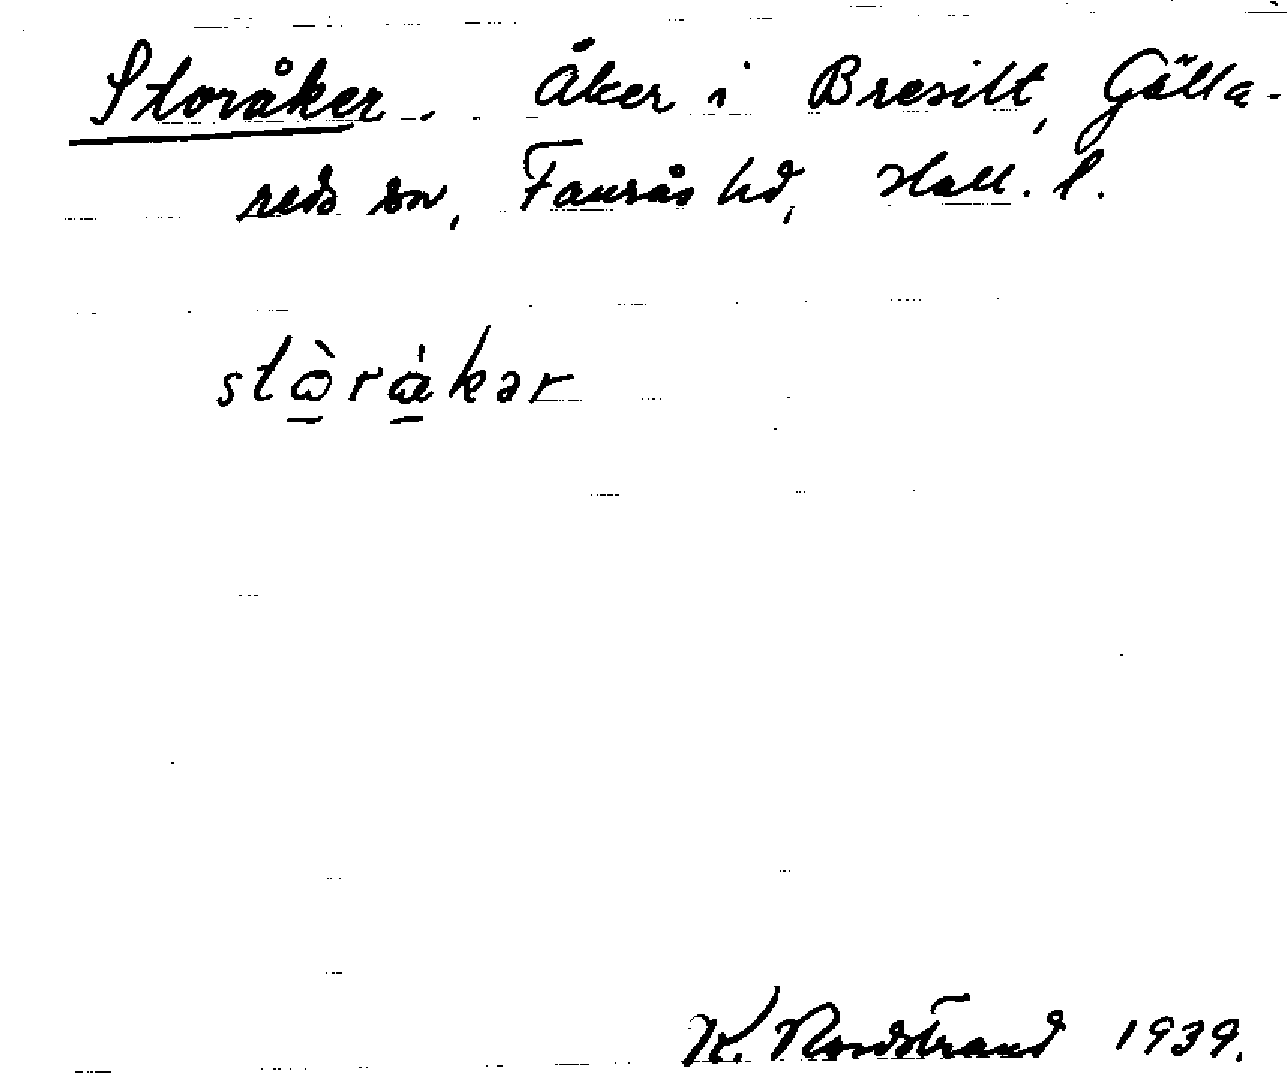 Storåker. Åker i Bresilt, Gälla-
reds sn, Faurås hd, Hall. l.
stὼ̱rὡ̱kər
K. Nordstrand 1939.